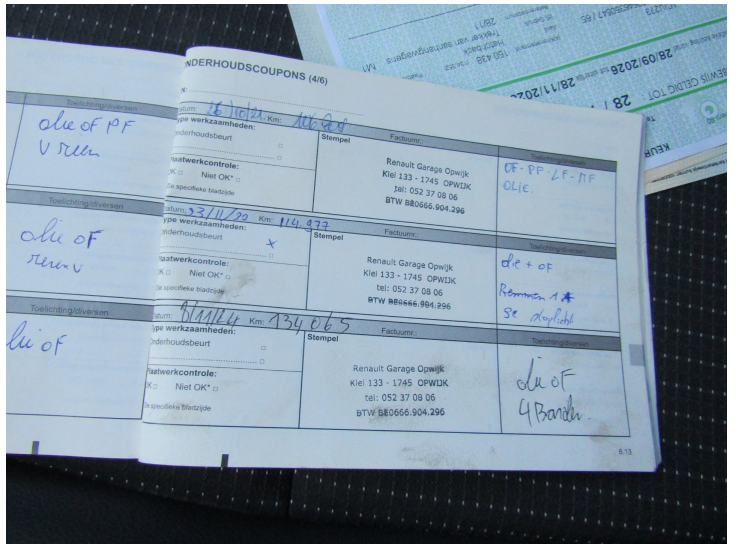 NDERHOUDSCOUPONS (4/6)
Toelichting/diversen
olie oF PF
Toelichting/diversen
olie oF
Toelichting/diversen
oF
atum: Km:
ype werkzaamheden:
nderhoudsbeurt
laatwerkcontrole:
K Niet OK*
e specifieke bladzijde
Stempel
Factuurnr.:
Renault Garage Opwijk
Klei 133 - 1745 OPWIJK
tel: 052 37 08 06
BTW BE0666.904.296
Toelichting/diversen
OF - PF - LF - HF
OLIE.
atum: 23/11/22 Km: 114.977
ype werkzaamheden:
nderhoudsbeurt x
laatwerkcontrole:
K Niet OK*
e specifieke bladzijde
Stempel
Factuurnr.:
Renault Garage Opwijk
Klei 133 - 1745 OPWIJK
tel: 052 37 08 06
BTW BE0666.904.296
Toelichting/diversen
olie + oF
Remmen
atum: 8/11/24 Km: 134065
ype werkzaamheden:
nderhoudsbeurt
laatwerkcontrole:
K Niet OK*
e specifieke bladzijde
Stempel
Factuurnr.:
Renault Garage Opwijk
Klei 133 - 1745 OPWIJK
tel: 052 37 08 06
BTW BE0666.904.296
Toelichting/diversen
olie oF
4 Banden.
6.13
KEUR
BEWIJS GELDIG TOT : 28
28/09/2026
28/11/202
150 438
Hatchback
Trekker van aanhangwagens
28/11
M1